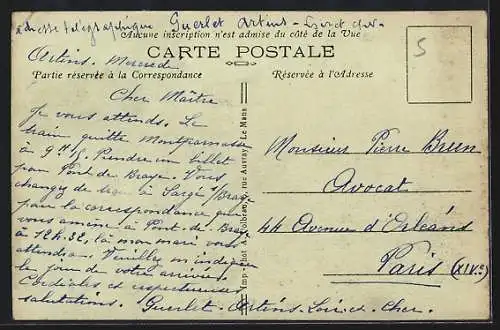 adresse télégraphique Guerlet Artins - Loir et cher -
Aucune inscription n'est admise du côté de la Vue
CARTE POSTALE
Partie réservée à la Correspondance
Réservée à l'Adresse
5
Artins. Mercredi
Cher Maître
Je vous attends. Le
train quitte Montparnasse
à 9 H 15. Prendre un billet
pour Pont de Braye. Vous
changez de à Sargé s/ Braye
pour la correspondance qui
vous amène à Pont de Braye
à 12 h. 32, là mon mari vous
attendra. Veuillez m'indiquer
le jour de votre arrivée.
Cordiales et respectueuses
salutations. Guerlet - Artins - Loir et Cher.
Imp.-Phot. A. Dolbeau, rue Auvray, Le Mans
Monsieur Pierre Breen
Avocat
44 Avenue d'Orléans
Paris (XIVe)